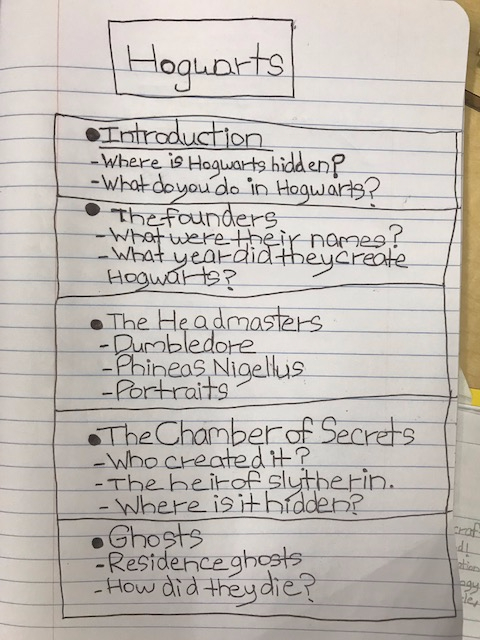 Hogwarts
●Introduction
-Where is Hogwarts hidden?
-What do you do in Hogwarts?
● The founders
-What were their names?
-What year did they create
Hogwarts?
●The Headmasters
-Dumbledore
-Phineas Nigellus
-Portraits
●The Chamber of Secrets
-Who created it?
-The heir of slytherin.
-Where is it hidden?
●Ghosts
-Residence ghosts
-How did they die?